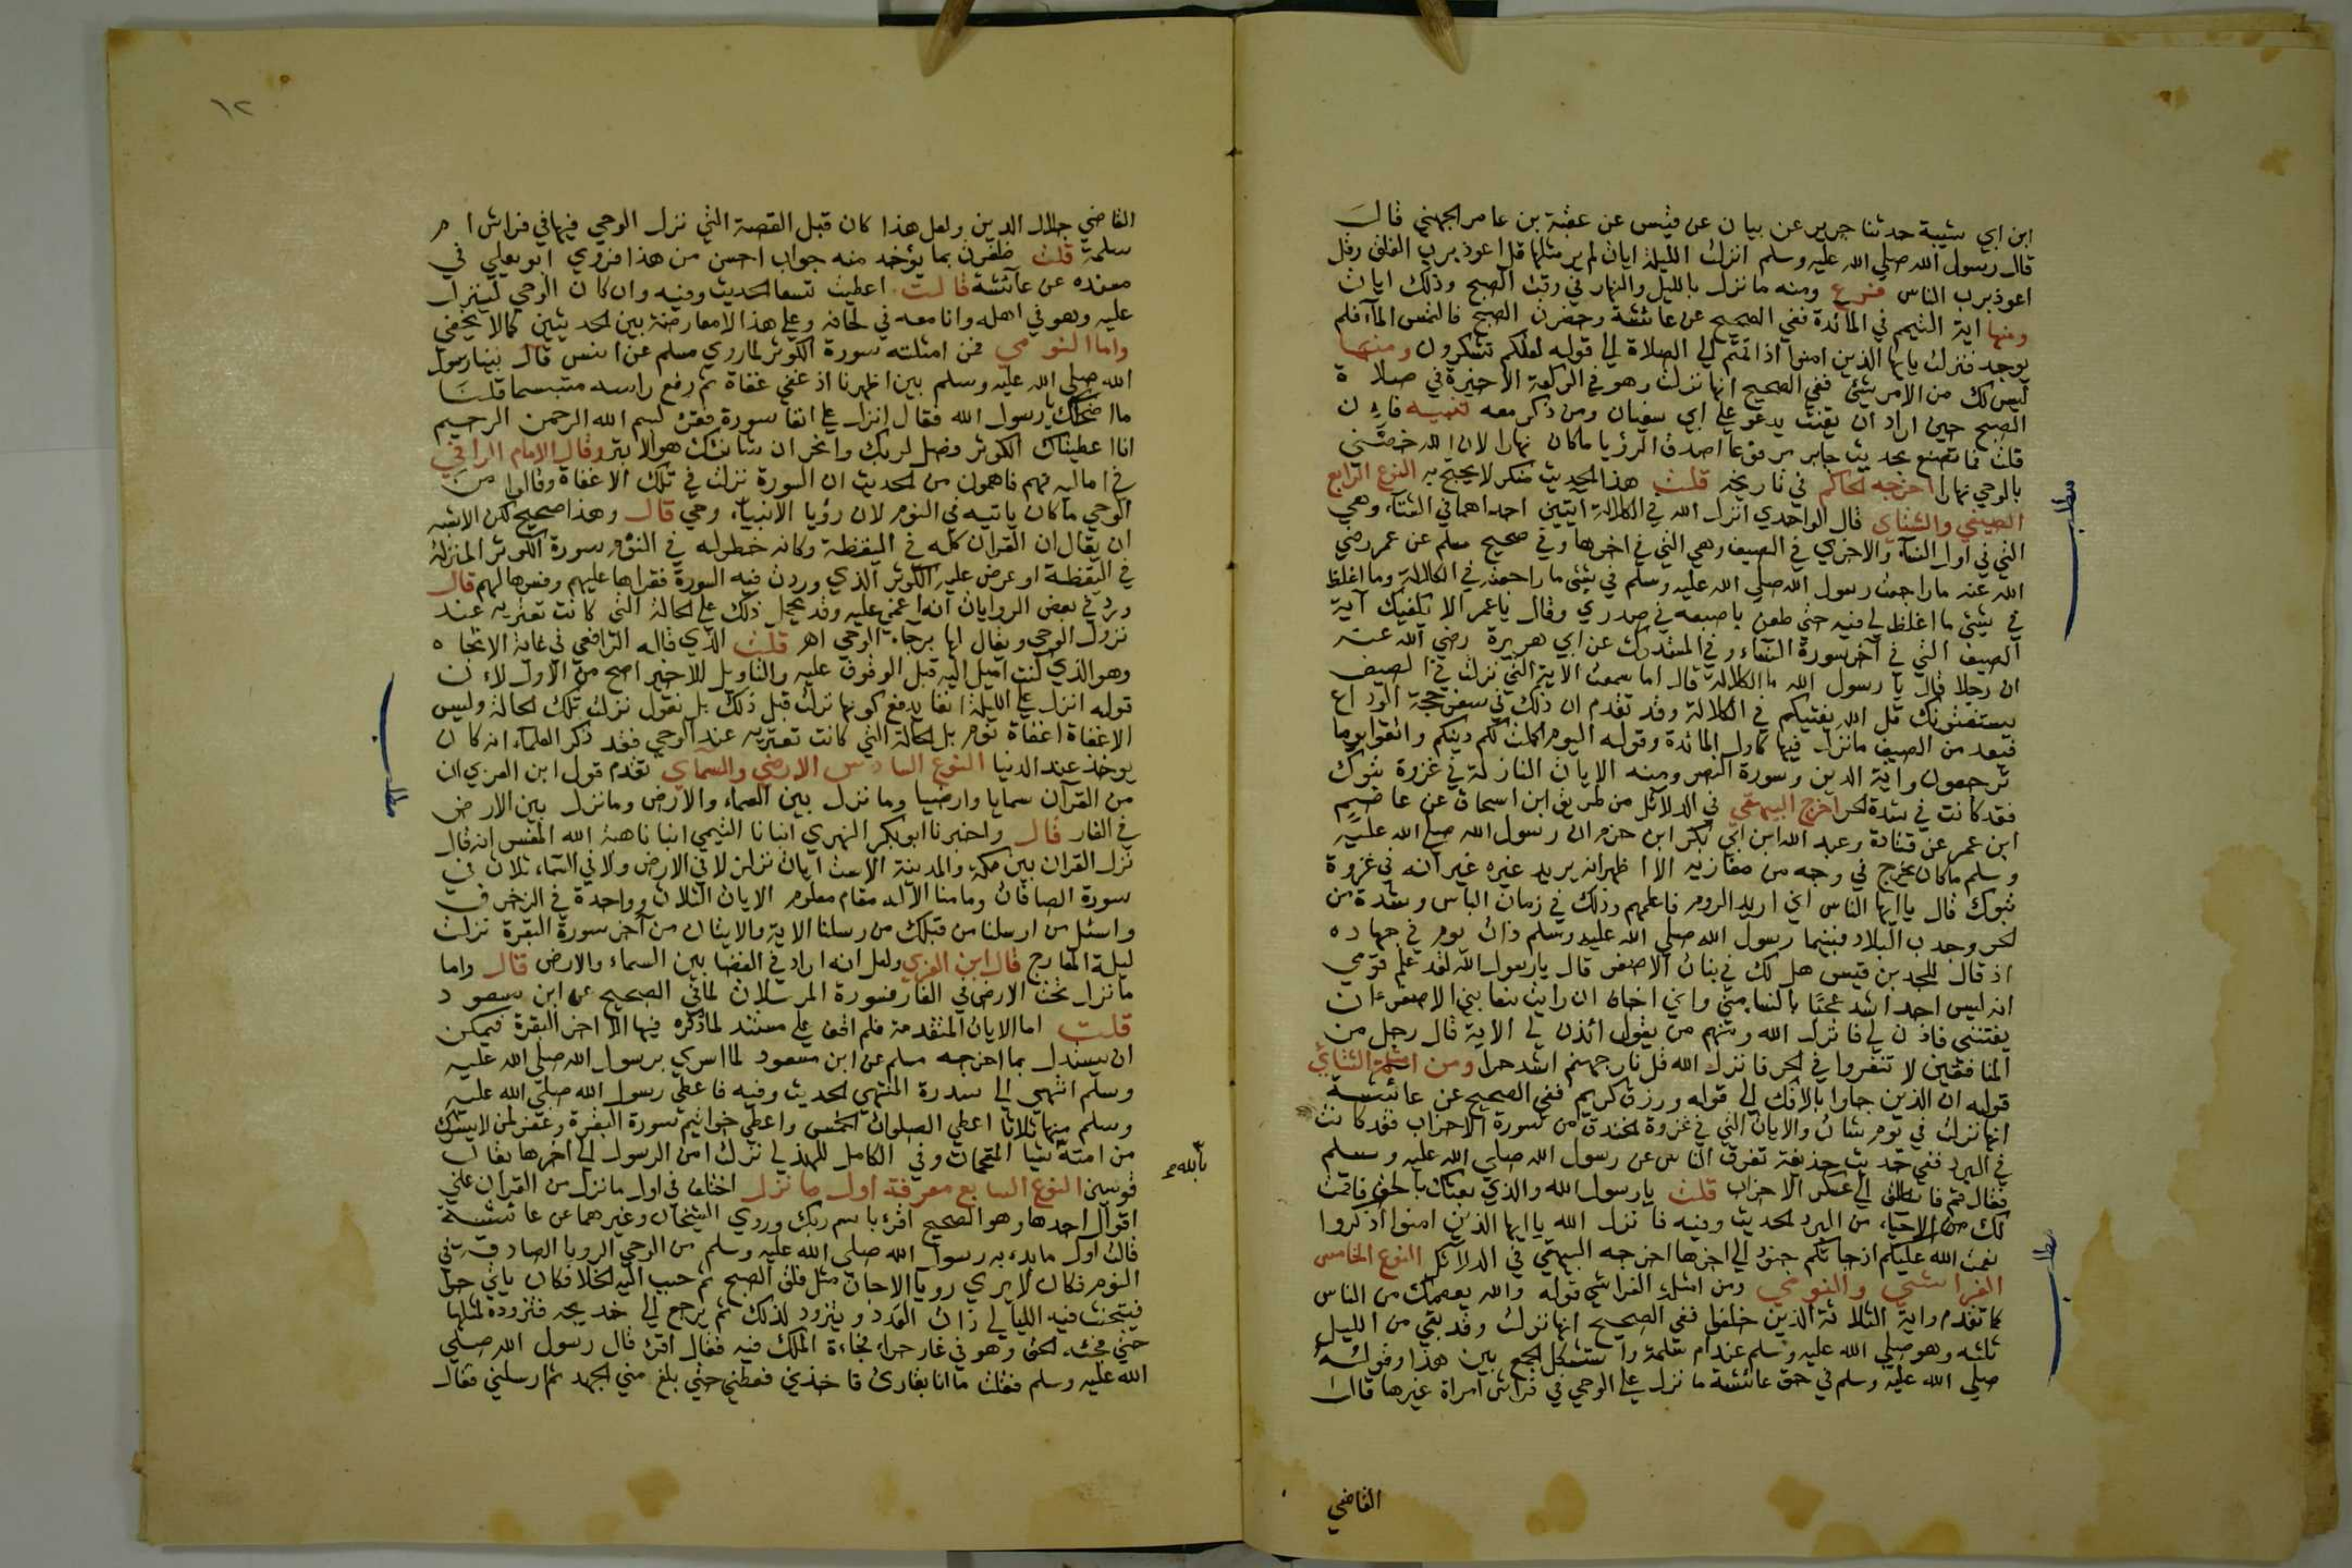 ابن ابي شيبة حدثنا جرير عن بيان عن قيس عن عقبة بن عامر الجهني قال
قال رسول الله صلى الله عليه وسلم انزلت الليلة ايات لم ير مثلها قل اعوذ برب الفلق وقل
اعوذ برب الناس فرع ومنه ما نزل بالليل والنهار في وقت الصبح وذلك ايات
ومنها اية التيمم في المائدة ففي الصحيح عن عائشة وحضرت الصبح فالتمس الماء فلم
يوجد فنزلت يايها الذين امنوا اذا قمتم الى الصلاة الى قوله لعلكم تشكرون ومنها
ليس لك من الامر شئ ففي الصحيح انها نزلت وهو في الركعة الاخيرة في صلاة
الصبح حين اراد ان يقنت يدعو على ابي سفيان ومن ذكر معه تنبيه فان
قلت فما تصنع بحديث جابر مرفوعا اصدق الرؤيا ما كان نهارا لان الله خصني
بالوحي نهارا اخرجه الحاكم في تاريخه قلت هذا الحديث منكر لا يحتج به النوع الرابع
الصيفي والشتاي قال الواحدي انزل الله في الكلالة ايتين احداهما في الشتاء وهي
التي في اول النساء والاخرى في الصيف وهي التي في اخرها وفي صحيح مسلم عن عمر رضي
الله عنه ما راجعت رسول الله صلى الله عليه وسلم في شئ ما راجعته في الكلالة وما اغلظ
في شئ ما اغلظ لي فيه حتى طعن باصبعه في صدري وقال يا عمر الا تكفيك آية
الصيف التي في آخر سورة النساء وفي المستدرك عن ابي هريرة رضي الله عنه
ان رجلا قال يا رسول الله ما الكلالة قال اما سمعت الاية التي نزلت في الصيف
يستفتونك قل الله يفتيكم في الكلالة وقد تقدم ان ذلك في سفر حجة الوداع
فيعد من الصيف ما نزل فيها كاول المائدة وقوله اليوم اكملت لكم دينكم واتقوا يوما
ترجعون واية الدين وسورة النصر ومنه الايات النازلة في غزوة تبوك
فقد كانت في شدة الحر اخرج البيهقي في الدلائل من طريق ابن اسحاق عن عاصم
ابن عمر عن قتادة وعبد الله ابن ابي بكر ابن حزم ان رسول الله صلى الله عليه
وسلم ما كان يخرج في وجه من مغازيه الا اظهر انه يريد غيره غير انه في غزوة
تبوك قال يا ايها الناس اني اريد الروم فاعلمهم وذلك في زمان الباس وشدة من
الحر وجدب البلاد فبينما رسول الله صلى الله عليه وسلم ذات يوم في جهاده
اذ قال للجد بن قيس هل لك في بنات الاصفر قال يا رسول الله لقد علم قومي
انه ليس احد اشد عجبا بالنساء مني واني اخاف ان رايت نساء بني الاصفر ان
يفتنني فاذن لي فانزل الله ومنهم من يقول ائذن لي الاية قال رجل من
المنافقين لا تنفروا في الحر فانزل الله قل نار جهنم اشد حرا ومن امثلة الشتائي
قوله ان الذين جاوا بالافك الى قوله ورزق كريم ففي الصحيح عن عائشة
انها نزلت في يوم شات والايات التي في غزوة الخندق من سورة الاحزاب فقد كانت
في البرد ففي حديث حذيفة تفرق الناس عن رسول الله صلى الله عليه وسلم
فقال قم فانطلق الى عسكر الاحزاب قلت يا رسول الله والذي بعثك بالحق ما قمت
لك من الاحياء من البرد الحديث وفيه فانزل الله يا ايها الذين امنوا اذكروا
نعمت الله عليكم اذ جاءتكم جنود الى اخرها اخرجه البيهقي في الدلائل النوع الخامس
الفراشي والنومي ومن امثلة الفراشي قوله والله يعصمك من الناس
كما تقدم واية الثلاثة الذين خلفوا ففي الصحيح انها نزلت وقد بقي من الليل
ثلثه وهو صلى الله عليه وسلم عند ام سلمة واستشكل الجمع بين هذا وقوله
صلى الله عليه وسلم في حق عائشة ما نزل علي الوحي في فراش امراة غيرها قال
القاضي
مطلب
مطلب
١٢
القاضي جلال الدين ولعل هذا كان قبل القصة التي نزل الوحي فيها في فراش ام
سلمة قلت ظفرت بما يؤخذ منه جواب احسن من هذا فروى ابو يعلي في
مسنده عن عائشة قالت اعطيت تسعا الحديث وفيه وان كان الوحي لينزل
عليه وهو في اهله وانا معه في لحافه وعلى هذا لا معارضة بين الحديثين كما لا يخفى
واما النومي فمن امثلته سورة الكوثر لما روي مسلم عن انس قال بينا رسول
الله صلى الله عليه وسلم بين اظهرنا اذ غفى غفاة ثم رفع راسه متبسما قلنا
ما اضحكك يا رسول الله فقال انزل علي انفا سورة فقرئ بسم الله الرحمن الرحيم
انا اعطيناك الكوثر فصل لربك وانحر ان شانئك هو الابتر وقال الامام الرافعي
في اماليه فهم فاهمون من الحديث ان السورة نزلت في تلك الاغفاة وقالوا من
الوحي ما كان ياتيه في النوم لان رؤيا الانبياء وحي قال وهذا صحيح لكن الاشبه
ان يقال ان القران كله في اليقظة وكانه خطر له في النوم سورة الكوثر المنزلة
في اليقظة او عرض عليه الكوثر الذي وردت فيه السورة فقراها عليهم وفسرها لهم قال
ورد في بعض الروايات انه اغمي عليه وقد يحمل ذلك على الحالة التي كانت تعتريه عند
نزول الوحي ويقال لها برحاء الوحي اهـ قلت الذي قاله الرافعي في غاية الاتجاه
وهو الذي كنت اميل اليه قبل الوقوف عليه والتاويل للاخير اصح من الاول لان
قوله انزل علي الليلة انفا يدفع كونها نزلت قبل ذلك بل نقول نزلت تلك الحالة وليس
الاغفاة اغفاة نوم بل الحالة التي كانت تعتريه عند الوحي فقد ذكر العلماء انه كان
يوخذ عند الدنيا النوع السادس الارضي والسماي تقدم قول ابن العربي ان
من القرآن سمايا وارضيا وما نزل بين السماء والارض وما نزل بين الارض
في الغار قال واخبرنا ابو بكر الفهري انبانا التيمي انبانا هبة الله المفسر انه قال
نزل القران بين مكة والمدينة الا ست ايات نزلن لا في الارض ولا في السماء ثلاث في
سورة الصافات وما منا الا له مقام معلوم الايات الثلاث وواحدة في الزخرف
واسئل من ارسلنا من قبلك من رسلنا الاية والايتان من آخر سورة البقرة نزلت
ليلة المعارج قال ابن العربي ولعل انه اراد في الفضا بين السماء والارض قال واما
ما نزل تحت الارض في الغار فسورة المرسلات كما في الصحيح عن ابن مسعود
قلت اما الايات المتقدمة فلم اقف على مستند لما ذكره فيها الا اخر البقرة فيمكن
ان يستدل بما اخرجه مسلم عن ابن مسعود لما اسري برسول الله صلى الله عليه
وسلم انتهى الى سدرة المنتهى الحديث وفيه فاعطي رسول الله صلى الله عليه
وسلم منها ثلاثا اعطي الصلوات الخمس واعطي خواتيم سورة البقرة وغفر لمن لا يشرك
من امته شيا المقحمات وفي الكامل للهذلي نزلت امن الرسول الى اخرها بقاب
قوسين النوع السابع معرفة اول ما نزل اختلف في اول ما نزل من القران على
اقوال احدها وهو الصحيح اقرئ باسم ربك وروى الشيخان وغيرهما عن عائشة
قالت اول ما بدء به رسول الله صلى الله عليه وسلم من الوحي الرويا الصادقة في
النوم فكان لا يرى رويا الا جات مثل فلق الصبح ثم حبب اليه الخلا فكان ياتي حرا
فيتحنث فيه الليالي ذات العدد ويتزود لذلك ثم يرجع الى خديجه فتزوده لمثلها
حتى فجئه الحق وهو في غار حراء فجاءه الملك فيه فقال اقرئ قال رسول الله صلى
الله عليه وسلم فقلت ما انا بقارئ فاخذني فغطني حتى بلغ مني الجهد ثم ارسلني فقال
مطلب
بالله